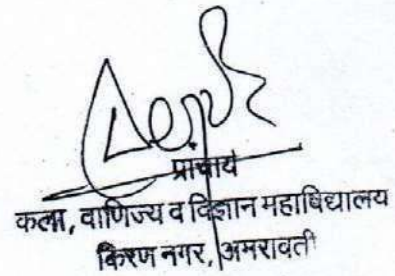 प्राचार्य
कला, वाणिज्य व विज्ञान महाविद्यालय
किरण नगर, अमरावती